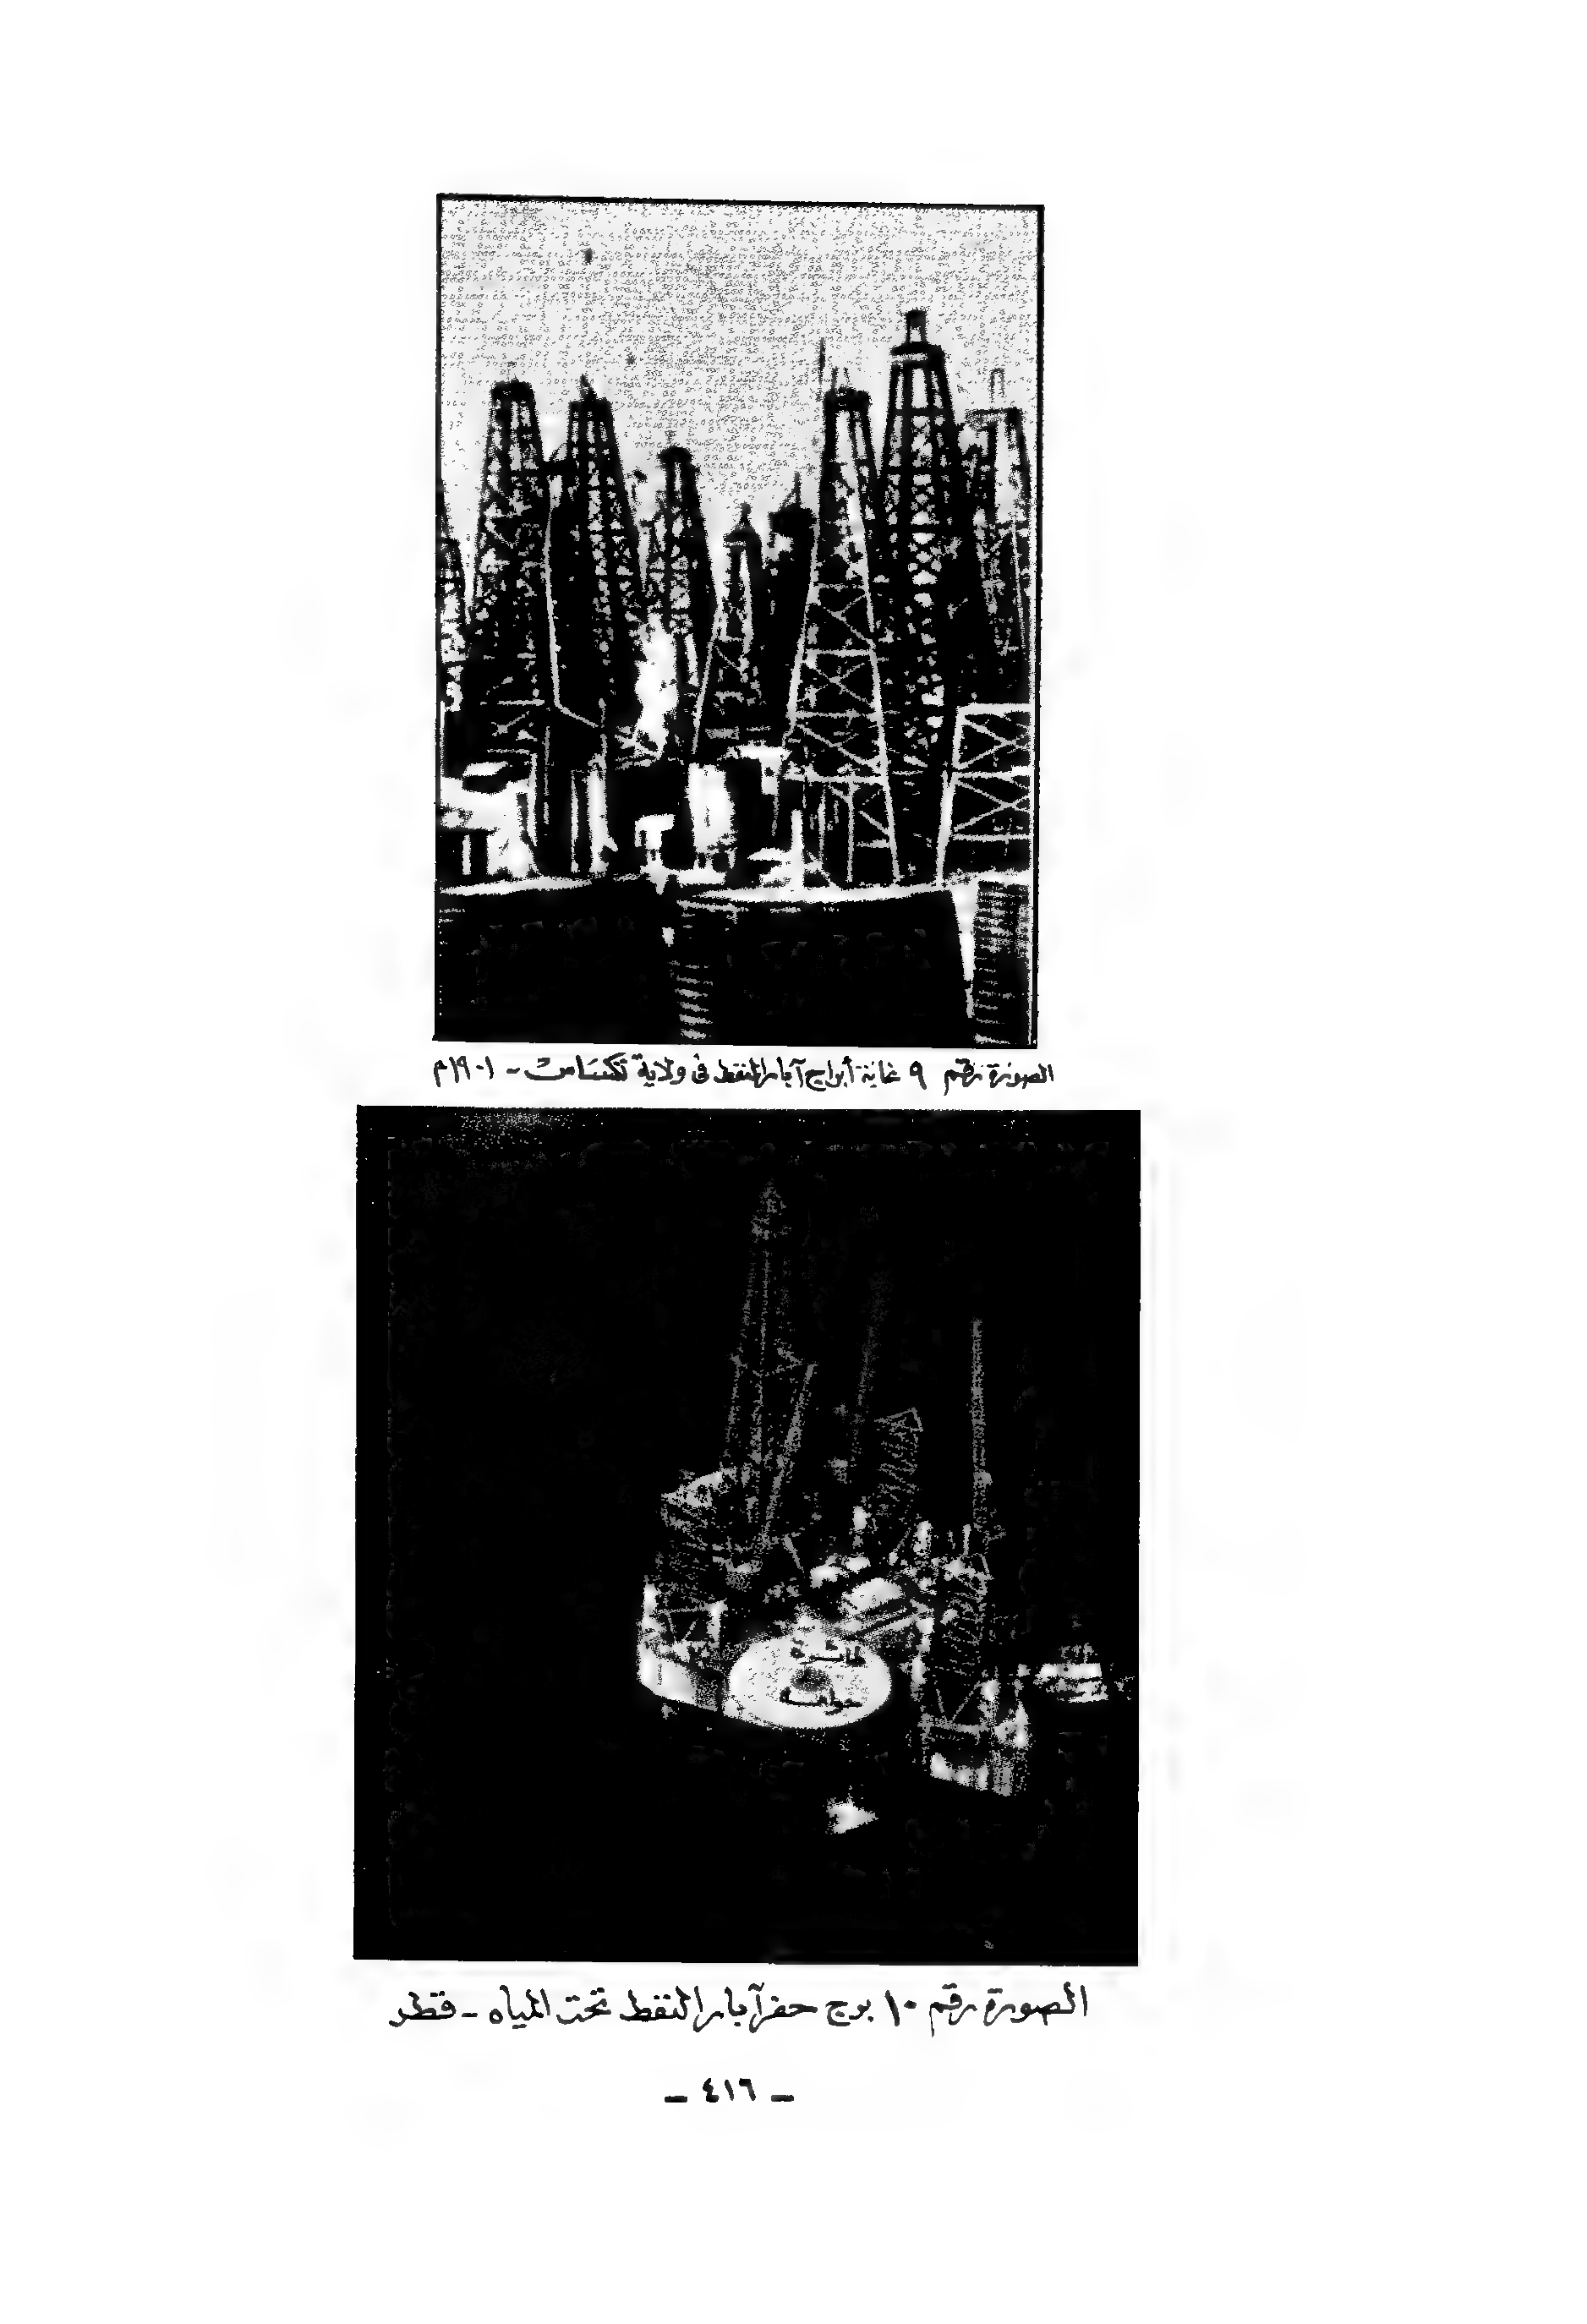 الصورة رقم ٩ غابة أبراج آبار النفط في ولاية تكساس - ١٩٠١م
طائرة
حوامة
الصورة رقم ١٠ برج حفر آبار النفط تحت المياه - قطر
- ٤١٦ -